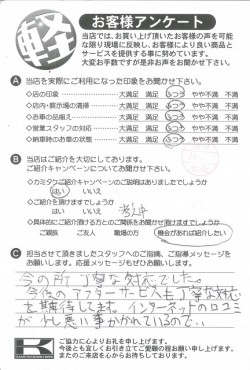 軽
お客様アンケート
当店では、お買い上げ頂いたお客様の声を可能
な限り現場に反映し、お客様により良い商品と
サービスを提供する事に努めています。
大変お手数ですが是非お声をお聞かせ下さい。
A 当店を実際にご利用になった印象をお聞かせ下さい。
◇店の印象 大満足 満足 ふつう やや不満 不満
◇店内・展示場の清掃 大満足 満足 ふつう やや不満 不満
◇お車の品揃え 大満足 満足 ふつう やや不満 不満
◇営業スタッフの対応 大満足 満足 ふつう やや不満 不満
◇納車時のお車の状態 大満足 満足 ふつう やや不満 不満
B 当店はご紹介を大切にしております。
ご紹介キャンペーンについてお聞かせ下さい。
◇カミタケご紹介キャンペーンのご説明はありましたでしょうか
はい いいえ
◇ご紹介を頂けますでしょうか
はい いいえ 考え中
◇具体的にご紹介頂ける方とのご関係をお聞かせ頂けますでしょうか
ご親族 ご友人 職場の方 機会があれば紹介したい
C 担当させて頂きましたスタッフへのご指摘、ご指導メッセージを
お願いします。応援メッセージもぜひお願いします。
今の所丁寧な対応でした。
今後のアフターサービスも丁寧な対応
を期待してます。インターネットの口コミ
が少し悪い事がかかれているので‥
ご協力に心よりお礼を申し上げます。
今後とも宜しくお引き立てご愛顧の程お願い申し上げます。
またのご来店を心からお待ちしております。